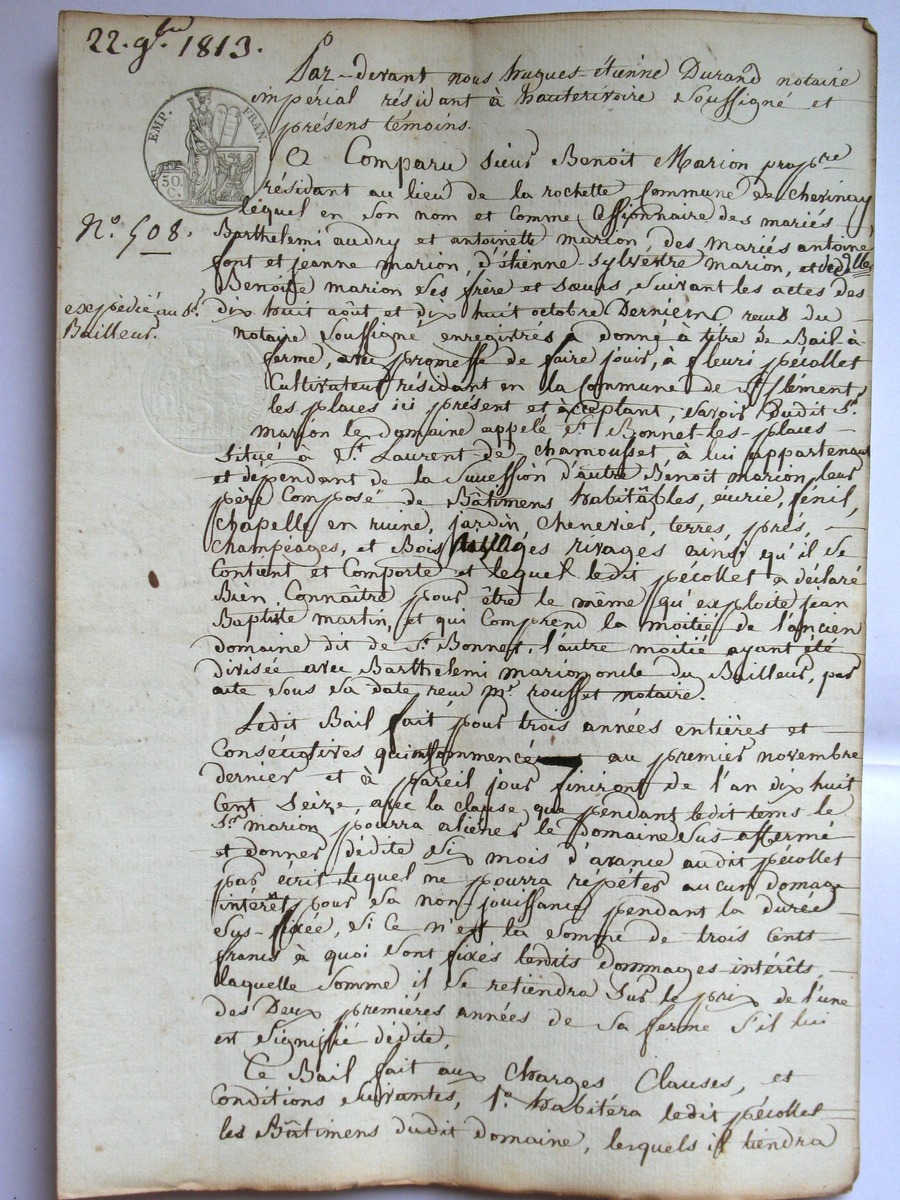 22. 9bre 1813.
Par-devant nous hugues-étienne Durand notaire
impérial résidant à hauterivoire soussigné et
présent témoins.
EMP. FRAN.
50.
C.
A Comparu Sieur Benoit Marion propre
résidant au lieu de la rochette Commune de chevinay
lequel en son nom et Comme Cessionnaire des mariés
N.° 508.
Barthelemi audry et antoinette marion, des mariés antoine
font et jeanne marion, d'étienne-sylvestre marion, et de dlle
Benoite marion ses frère et sœurs, suivant les actes des
expédié au Sr.
Bailleur.
dix huit août et dix huit octobre Derniers reçus du
notaire soussigné enregistrés a donné à titre de Bail-à-
ferme, avec promesse de faire jouir, à fleuri pécollet
Cultivateur résidant en la Commune de St. Clément
les places ici présent et acceptant, savoir dudit Sr.
marion le domaine appelé St. Bonnet-les-places
situé à St. Laurent de chamousset à lui appartenant
et dépendant de la succession d'autre Benoit marion, leur
père Composé de Bâtimens habitâbles, écurie, fénil,
chapelle en ruine, jardin, chenevier, terres, prés,
champéages, et Bois rivages ainsi qu'il se
Contient et Comporte et lequel ledit pécollet a déclaré
Bien Connaître pour être le même qu'exploite jean
Baptiste martin, et qui Comprend la moitié de l'ancien
domaine dit de St. Bonnet, l'autre moitié ayant été
divisée avec Barthelemi marion oncle du Bailleur, par
acte sous sa date reçu mr. rousset notaire.
Ledit Bail fait pour trois années entières et
Consécutives qui ont commencé au premier novembre
dernier et à pareil jour finiront de l'an dix huit
Cent seize, avec la clause que pendant ledit tems le
Sr. marion pourra aliener le domaine sus-affermé
et donner dédite six mois d'avance audit pécollet
par écrit, lequel ne pourra répéter aucun domage
intérêt pour sa non-jouissance pendant la durée
sus-fixée, si ce n'est la somme de trois Cents
francs à quoi sont fixés lesdits dommages-intérêts,
laquelle somme il se retiendra sur le prix de l'une
des Deux premières années de sa ferme s'il lui
est signifié dédite,
Ce Bail fait aux Charges Clauses, et
Conditions suivantes, 1.° habitéra ledit pécollet
les Bâtimens dudit domaine, lesquels il tiendra